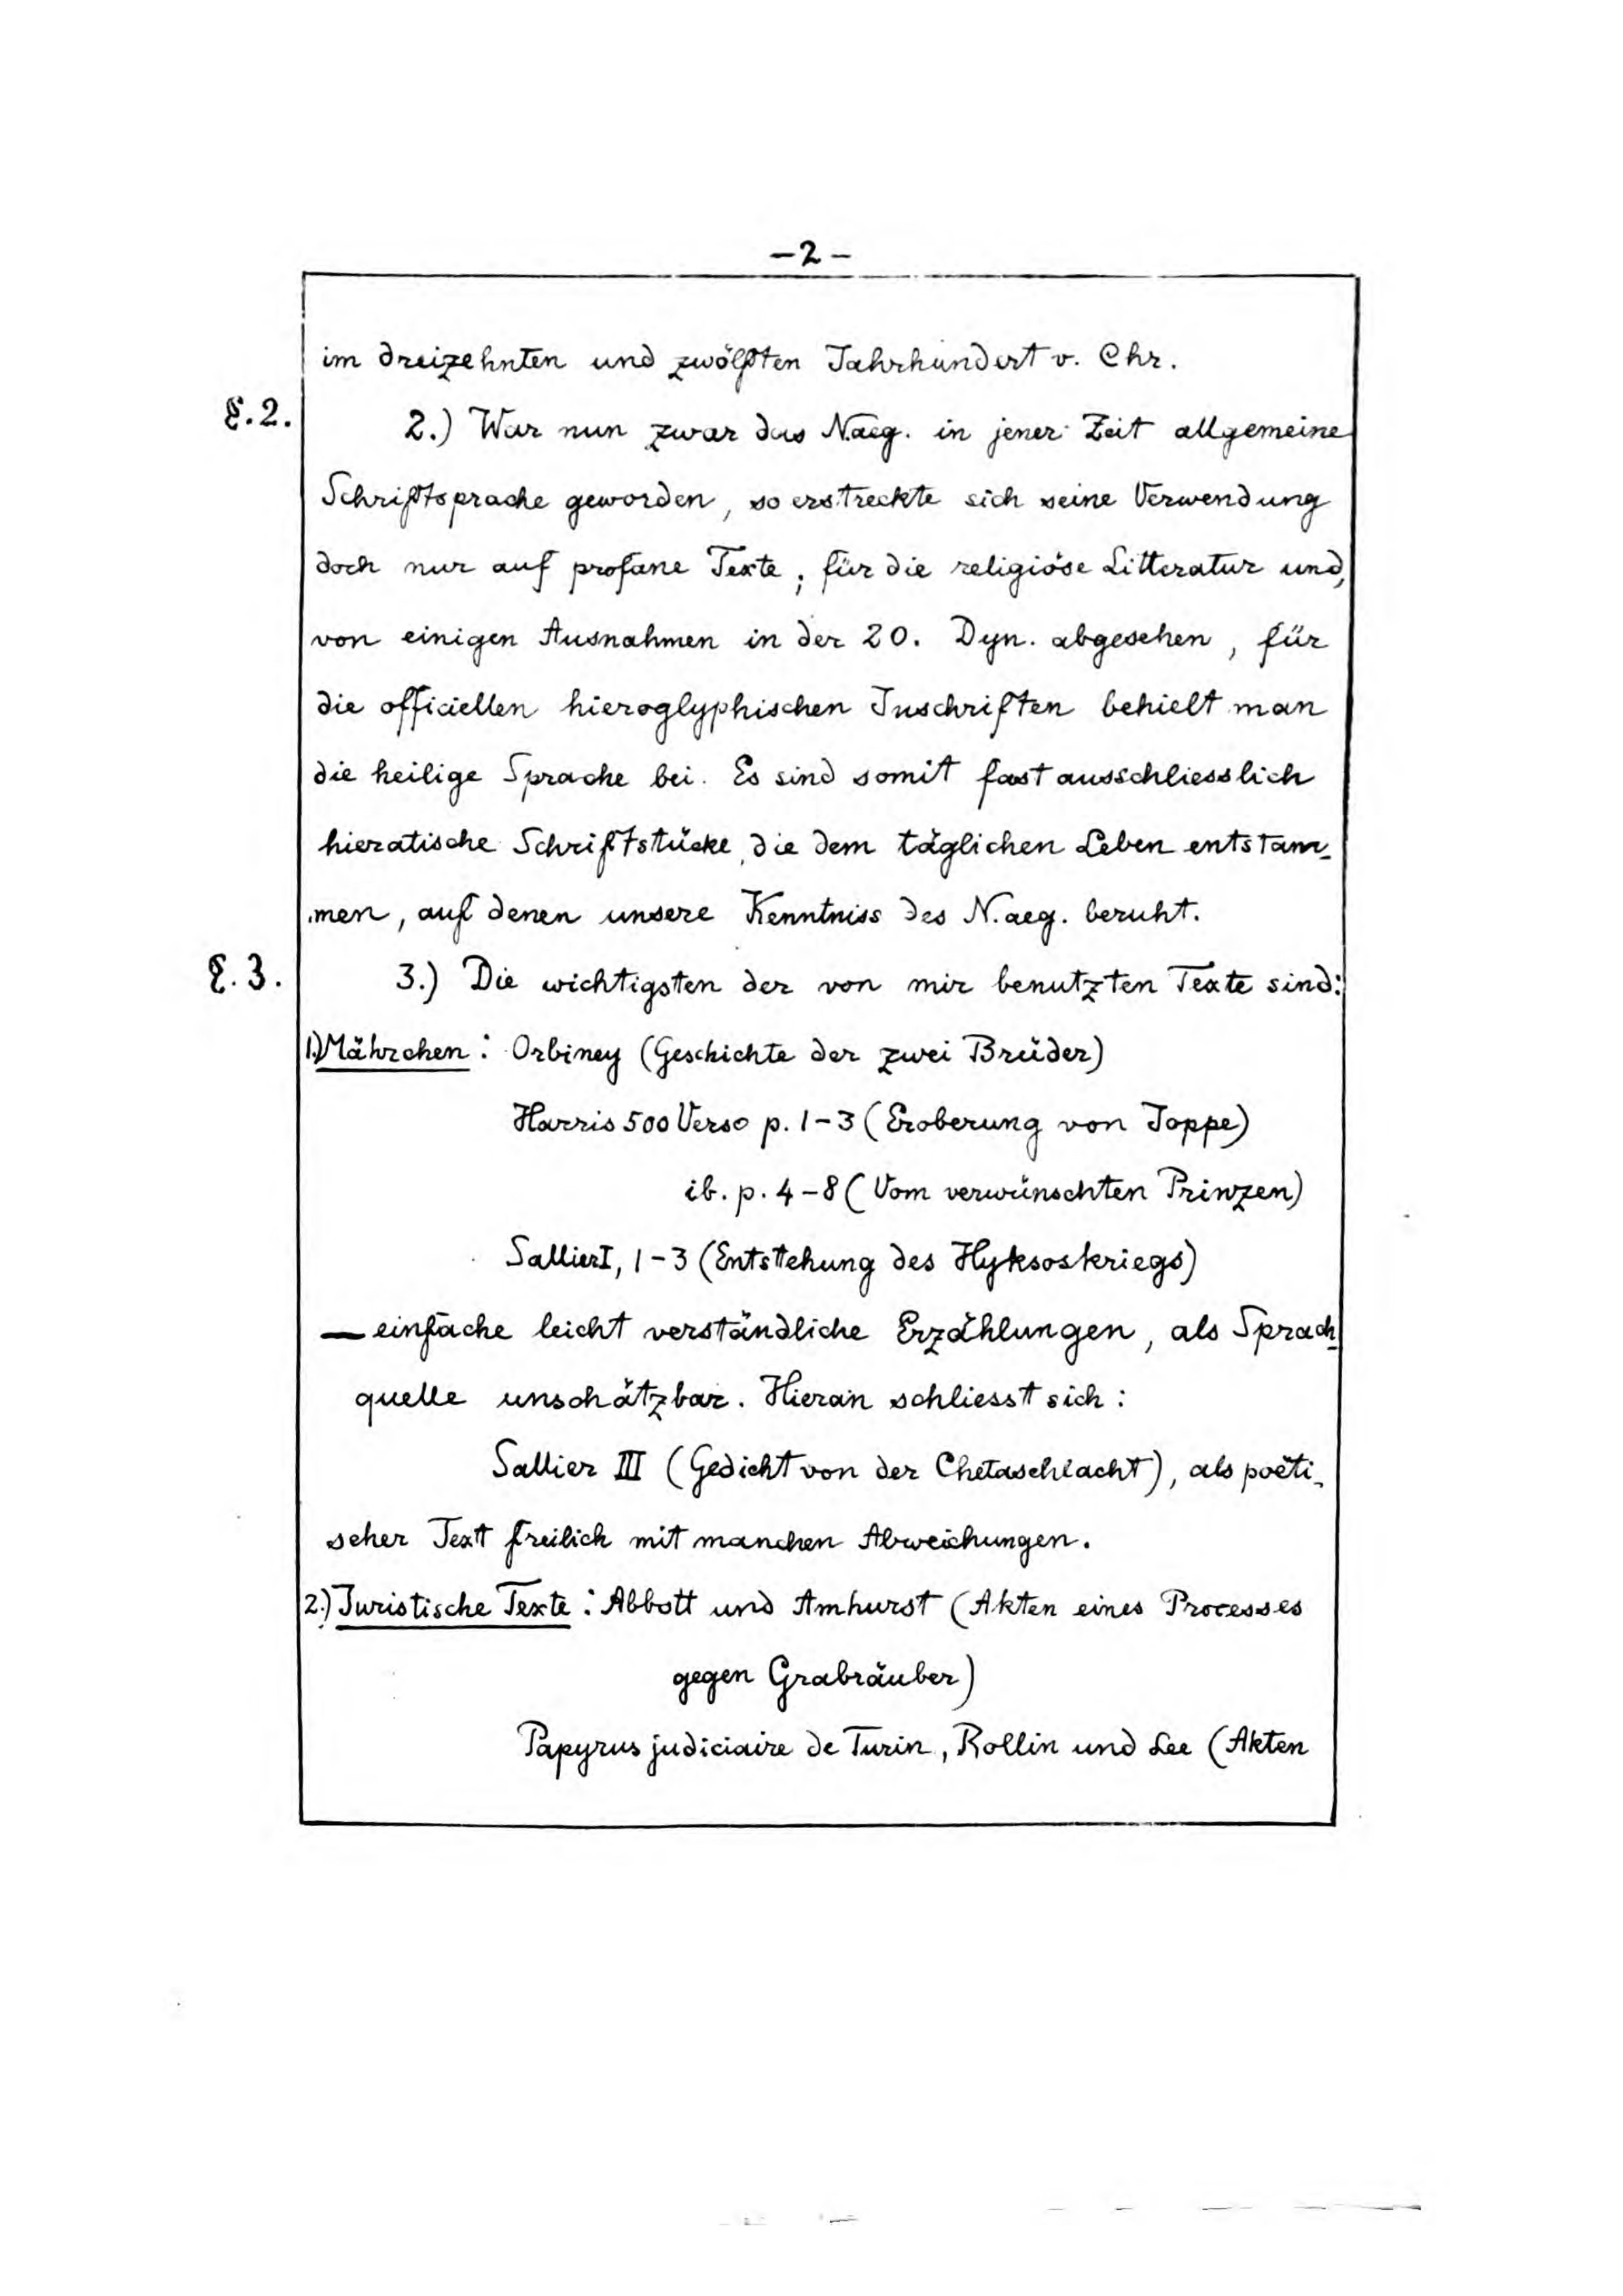 -2-
im dreizehnten und zwölften Jahrhundert v. Chr.
§.2.
2.) War nun zwar das N.aeg. in jener Zeit allgemeine
Schriftsprache geworden, so erstreckte sich seine Verwendung
doch nur auf profane Texte; für die religiöse Litteratur und,
von einigen Ausnahmen in der 20. Dyn. abgesehen, für
die officiellen hieroglyphischen Inschriften behielt man
die heilige Sprache bei. Es sind somit fast ausschliesslich
hieratische Schriftstücke, die dem täglichen Leben entstam-
men, auf denen unsere Kenntniss des N.aeg. beruht.
§.3.
3.) Die wichtigsten der von mir benutzten Texte sind:
1) Mährchen: Orbiney (Geschichte der zwei Brüder)
Harris 500 Verso p. 1-3 (Eroberung von Joppe)
ib. p. 4-8 (Vom verwünschten Prinzen)
Sallier I, 1-3 (Entstehung des Hyksoskriegs)
— einfache leicht verständliche Erzählungen, als Sprach-
quelle unschätzbar. Hieran schliesst sich:
Sallier III (Gedicht von der Chetaschlacht), als poëti-
scher Text freilich mit manchen Abweichungen.
2.) Juristische Texte: Abbott und Amhurst (Akten eines Processes
gegen Grabräuber)
Papyrus judiciaire de Turin, Rollin und Lee (Akten